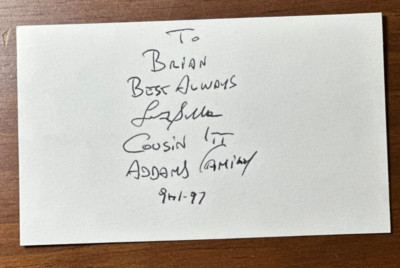 To
BRIAN
BEST ALWAYS
COUSIN ITT
ADDAMS FAMILY